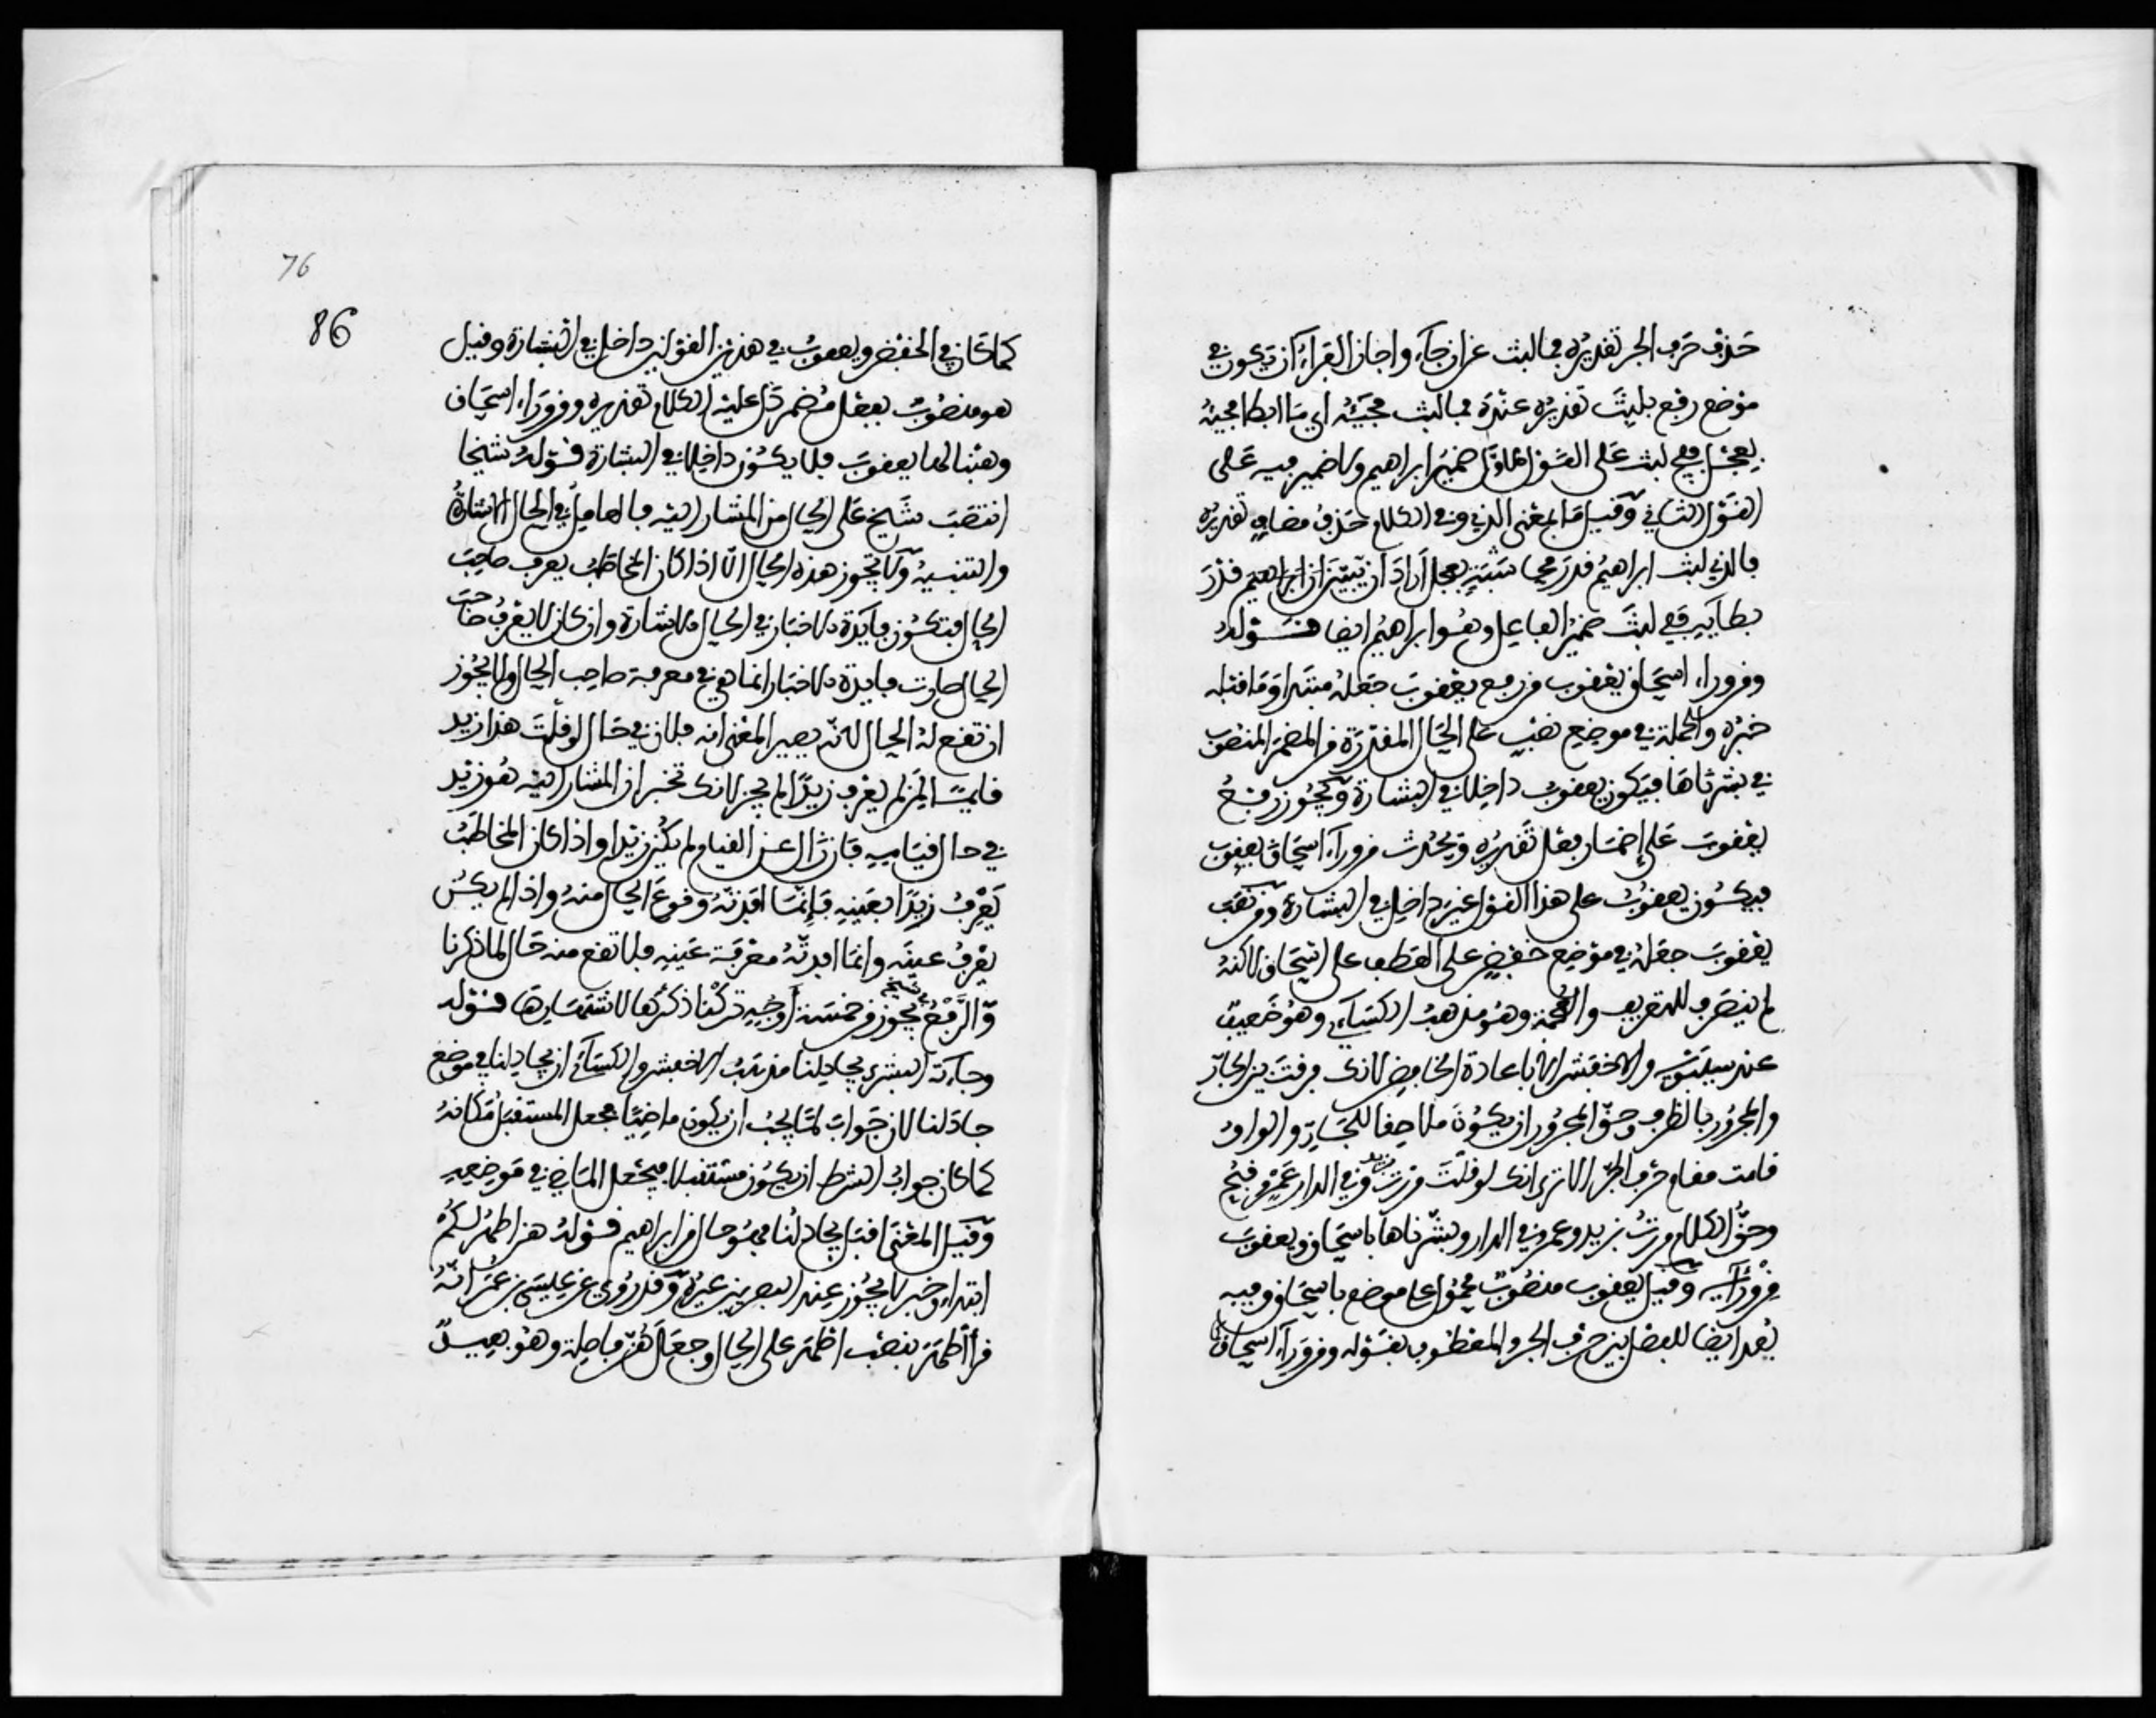 حذف حرف الجر تقديره فما لبث عن ان جاء واجاز الفراء ان تكون في
موضع رفع بلبث تقديره عنده فما لبث مجيئه اي ما ابطا مجيئه
بعجل ففي لبث على القول الاول ضمير ابراهيم ولا ضمير فيه على
القول الثاني وقيل ما بمعنى الذي وفي الكلام حذف مضاف تقديره
فالذي لبث ابراهيم قدر مجيئه بعجل اراد ان يبين ان ابراهيم قدر
بطأيه ففي لبث ضمير الفاعل وهو ابراهيم ايضا قوله
ومن وراء اسحاق يعقوب من رفع يعقوب جعله مبتدا وما قبله
خبره والجملة في موضع نصب على الحال المقدرة من المضمر المنصوب
في بشرناها فيكون يعقوب داخلا في البشارة ويجوز رفع
يعقوب على اضمار فعل تقديره ويحدث من وراء اسحاق يعقوب
فيكون يعقوب على هذا القول غير داخل في البشارة ومن نصب
يعقوب جعله في موضع خفض على العطف على اسحاق لاكنه
لم ينصرف للتعريف والعجمة وهو مذهب الكساءي وهو ضعيف
عند سيبويه والاخفش الا باعادة الخافض لانك فرقت بين الجار
والمجرور بالظرف وحق المجرور ان يكون ملاصقا للجار والواو
قامت مقام حرف الجر الا ترى انك لو قلت مررت بزيد وفي الدار عمرو قبح
وحق الكلام مررت بزيد وعمرو في الدار وبشرناها باسحاق ويعقوب
من ورائه وقيل يعقوب منصوب محمول على موضع باسحاق وفيه
بعد ايضا للفصل بين حرف الجر والمعطوف بقوله ومن وراء اسحاق
76
86
كما كان في الخفض ويعقوب في هذين القولين داخل في البشارة وقيل
هو منصوب بفعل مضمر دل عليه الكلام تقديره ومن وراء اسحاق
وهبنا لها يعقوب فلا يكون داخلا في البشارة قوله شيخا
انتصب شيخ على الحال من المشار اليه فالعامل في الحال الاشارة
والتنبيه ولا تجوز هذه الحال الا اذا كان المخاطب يعرف صاحب
الحال فتكون فايدة الاخبار في الحال الاشارة وان كان لا يعرف صاحب
الحال صارت فايدة الاخبار انما هي في معرفة صاحب الحال ولا يجوز
ان تقع له الحال لانه يصير المعنى انه فلان في حال لو قلت هذا زيد
قايما لمن لم يعرف زيدا لم يجز لانك تخبر ان المشار اليه هو زيد
في حال قيامه فان زال عن القيام لم يكن زيدا واذا كان المخاطب
يعرف زيدا بعينه فانما افدته وقوع الحال منه واذا لم يكن
يعرف عينه وانما افدته معرفة عينه فلا تقع منه حال لما ذكرنا
والرفع في شيخ يجوز من خمسة اوجه تركنا ذكرها لاشتهارها قوله
وجاءته البشرى يجادلنا مذهب الاخفش والكساءي ان يجادلنا في موضع
جادلنا لان جواب لما يجب ان يكون ماضيا فجعل المستقبل مكانه
كما كان جواب الشرط ان يكون مستقبلا فيجعل الماضي في موضعه
وقيل المعنى اقبل يجادلنا فهو حال من ابراهيم قوله هن اطهر لكم
ابتداء وخبر لا يجوز عند البصريين غيره وقد روي عن عيسى بن عمر انه
قرا اطهر بنصب اطهر على الحال وجعل هن فاصلة وهو بعيد